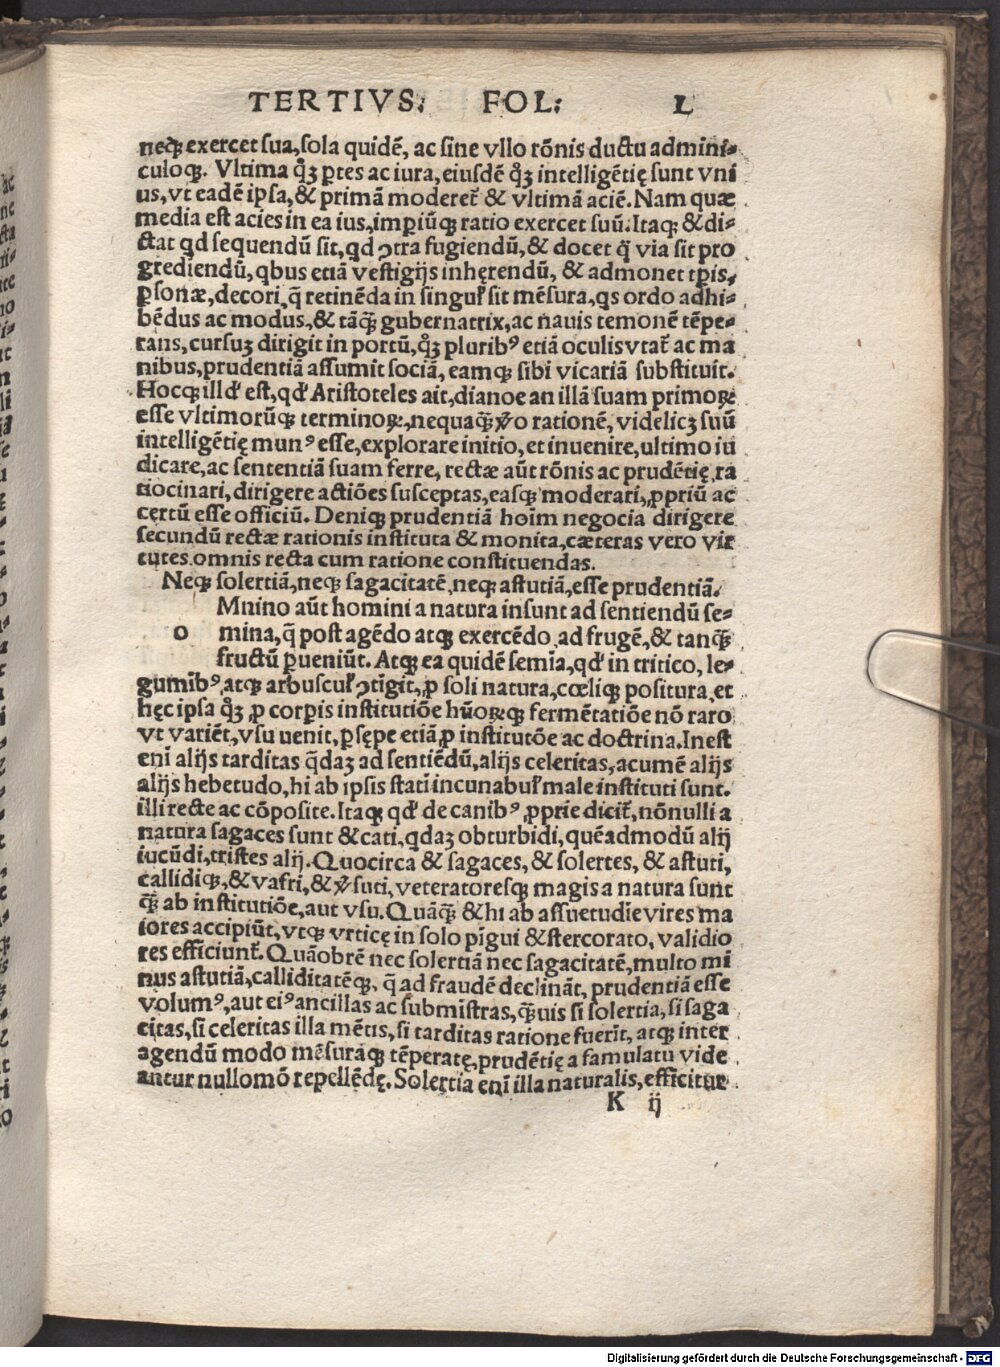 TERTIVS: FOL: L
neq̃ exercet sua, sola quidẽ, ac sine vllo rõnis ductu admini-
culoq̃. Vltima q̊ꝫ ꝑtes ac iura, eiusdẽ q̊ꝫ intelligẽtię sunt vni
us, vt eadẽ ipsa, & primã moderet᷑ & vltimã aciẽ. Nam quæ
media est acies in ea ius, imꝑiũq̃ ratio exercet suũ. Itaq̃ & di-
ctat qd sequendũ sit, qd ꝯtra fugiendũ, & docet q̃ via sit pro
grediendũ, qbus etiã vestigijs inhęrendũ, & admonet tꝑis,
ꝑsonæ, decori, q̃ retinẽda in singul᷑ sit mẽsura, qs ordo adhi-
bẽdus ac modus, & tãq̃ gubernatrix, ac nauis temonẽ tẽpe-
rans, cursuꝫ dirigit in portũ, q̊ꝫ plurib⁹ etiã oculis vtat᷑ ac ma
nibus, prudentiã assumit sociã, eamq̃ sibi vicariã substituit.
Hocq̃ illd' est, qd' Aristoteles ait, dianoean illã suam primoꝝ
esse vltimorũq̃ terminoꝝ, nequaq̃ ꝟo rationẽ, videlicꝫ suũ
intelligẽtię mun⁹ esse, explorare initio, et inuenire, vltimo iu
dicare, ac sententiã suam ferre, rectæ aũt rõnis ac prudẽtię, ra
tiocinari, dirigere actiões susceptas, easq̃ moderari, ꝓpriũ ac
certũ esse officiũ. Deniq̃ prudentiã hoĩm negocia dirigere
secundũ rectæ rationis instituta & monita, cæteras vero vir
tutes omnis recta cum ratione constituendas.
Neq̃ solertiã, neq̃ sagacitatẽ, neq̃ astutiã, esse prudentiã.
Mnino aũt homini a natura insunt ad sentiendũ se-
o mina, q̃ post agẽdo atq̃ exercẽdo ad frugẽ, & tanq̃
fructũ ꝑueniũt. Atq̃ ea quidẽ semĩa, qd' in tritico, le-
gumĩb⁹, atq̃ arbuscul᷑ ꝯtĩgit, ꝓ soli natura, cœliq̃ positura, et
hęc ipsa q̊ꝫ ꝓ corpis institutiõe hũoꝝq̃ fermẽtatiõe nõ raro
vt variẽt, vsu uenit, ꝑsępe etiã ꝓ institutõe ac doctrina. Inest
enĩ alijs tarditas q̃daꝫ ad sentiẽdũ, alijs celeritas, acumẽ alijs
alijs hebetudo, hi ab ipsis statĩ incunabul᷑ male instituti sunt.
illi recte ac cõposite. Itaq̃ qd' de canib⁹ ꝓprie dicit᷑, nõnulli a
natura sagaces sunt & cati, qdaꝫ obturbidi, quẽadmodũ alij
iucũdi, tristes alij. Quocirca & sagaces, & solertes, & astuti,
callidiq̃, & vafri, & ꝟsuti, veteratoresq̃ magis a natura sunt
q̃ ab institutiõe, aut vsu. Quãq̃ & hi ab assuetudĩe vires ma
iores accipiũt, vtq̃ vrticę in solo pĩgui & stercorato, validio
res efficiunt᷑. Quãobrẽ nec solertiã nec sagacitatẽ, multo mĩ
nus astutiã, calliditatẽq̃, q̃ ad fraudẽ declinãt, prudentiã esse
volum⁹, aut ei⁹ ancillas ac submĩstras, q̃uis si solertia, si saga
citas, si celeritas illa mẽtis, si tarditas ratione fuerĩt, atq̃ inter
agendũ modo mẽsuraq̃ tẽperatę, prudẽtię a famulatu vide
antur nullomõ repellẽdę. Solertia enĩ illa naturalis, efficitur
K ij
Digitalisierung gefördert durch die Deutsche Forschungsgemeinschaft - DFG